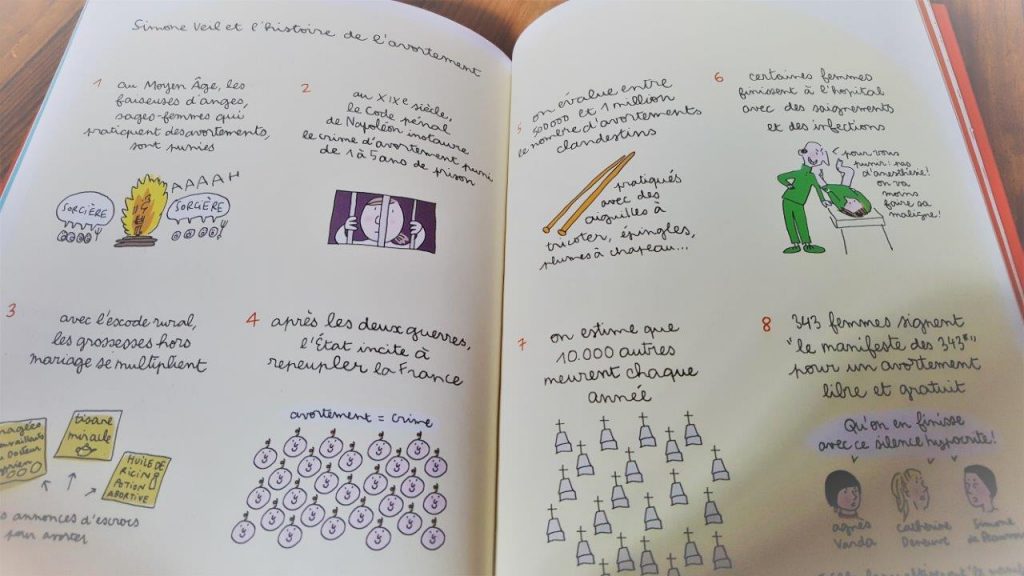 Simone Veil et l'histoire de l'avortement
1
au Moyen Âge, les
faiseuses d'anges,
sages-femmes qui
pratiquent des avortements,
sont punies
SORCIÈRE
AAAAH
SORCIÈRE
2
au XIXe siècle,
le Code pénal
de Napoléon instaure
le crime d'avortement puni
de 1 à 5 ans de prison
3
avec l'exode rural,
les grossesses hors
mariage se multiplient
tisane
miracle
HUILE DE
RICIN
POTION
ABORTIVE
annonces d'escrocs
pour avorter
4
après les deux guerres,
l'État incite à
repeupler la France
avortement = crime
5
on évalue entre
500000 et 1 million
le nombre d'avortements
clandestins
pratiqués
avec des
aiguilles à
tricoter, épingles,
plumes à chapeau...
6
certaines femmes
finissent à l'hôpital
avec des saignements
et des infections
pour vous
punir: pas
d'anesthésie!
on va
moins
faire sa
maligne!
7
on estime que
10.000 autres
meurent chaque
année
8
343 femmes signent
"le manifeste des 343*"
pour un avortement
libre et gratuit
Qu'on en finisse
avec ce silence hypocrite!
agnès
Varda
Catherine
Deneuve
Simone
de Beauvoir